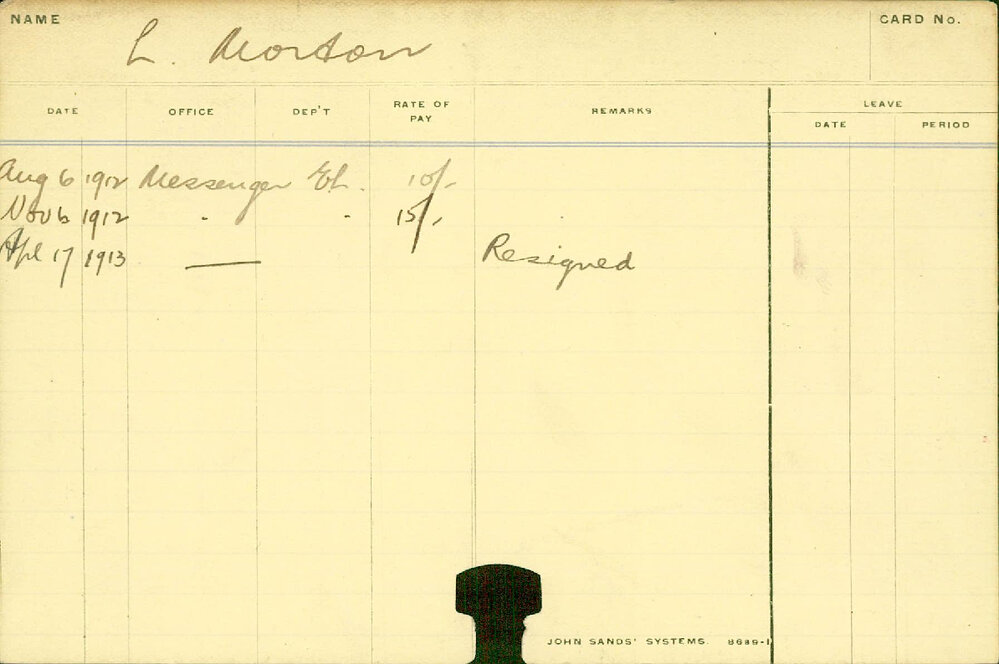 NAME L. Morton CARD No.
DATE OFFICE DEP'T RATE OF PAY REMARKS LEAVE
DATE PERIOD
Aug 6 1912 Messenger EL. 10/-
Nov 6 1912 " " 15/-
Apl 17 1913 — Resigned
JOHN SANDS' SYSTEMS. 8689-1